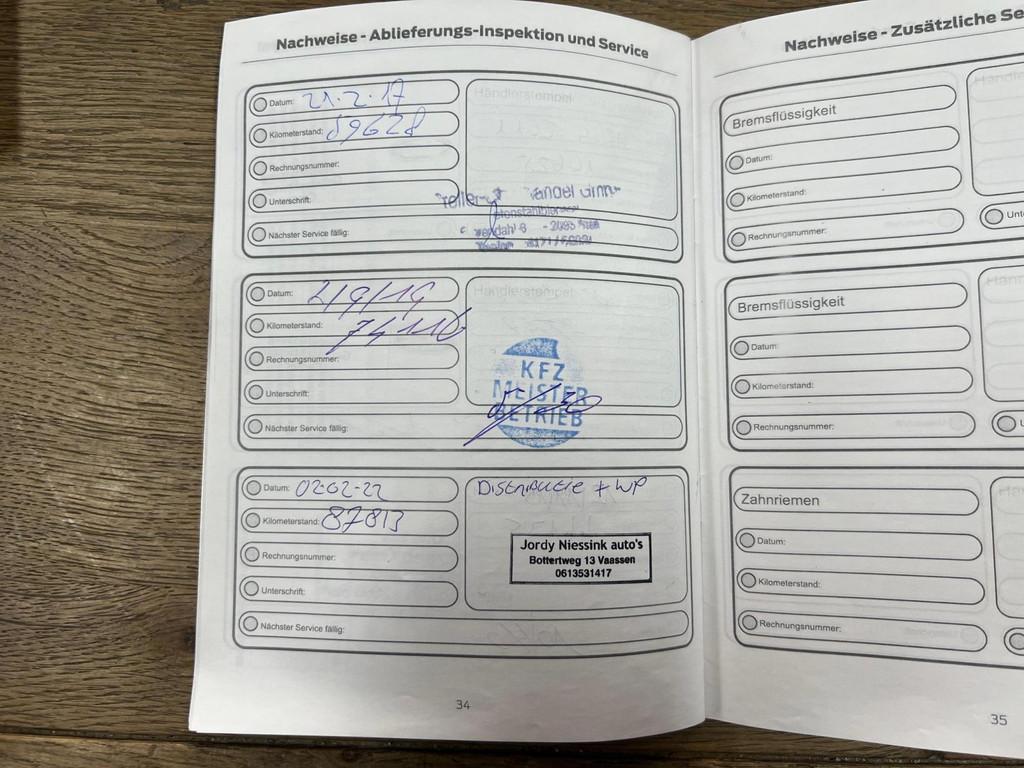 Nachweise - Ablieferungs-Inspektion und Service
Datum: 21.2.17
Kilometerstand: 59628
Rechnungsnummer:
Unterschrift:
Nächster Service fällig:
Händlerstempel
Datum: 2/9/19
Kilometerstand: 74116
Rechnungsnummer:
Unterschrift:
Nächster Service fällig:
Händlerstempel
KFZ
MEISTER
BETRIEB
Datum: 02-02-22
Kilometerstand: 87813
Rechnungsnummer:
Unterschrift:
Nächster Service fällig:
+ WP
Jordy Niessink auto's
Bottertweg 13 Vaassen
0613531417
34
Nachweise - Zusätzliche Se
Bremsflüssigkeit
Datum:
Kilometerstand:
Rechnungsnummer:
Bremsflüssigkeit
Datum:
Kilometerstand:
Rechnungsnummer:
Zahnriemen
Datum:
Kilometerstand:
Rechnungsnummer:
Unt
35